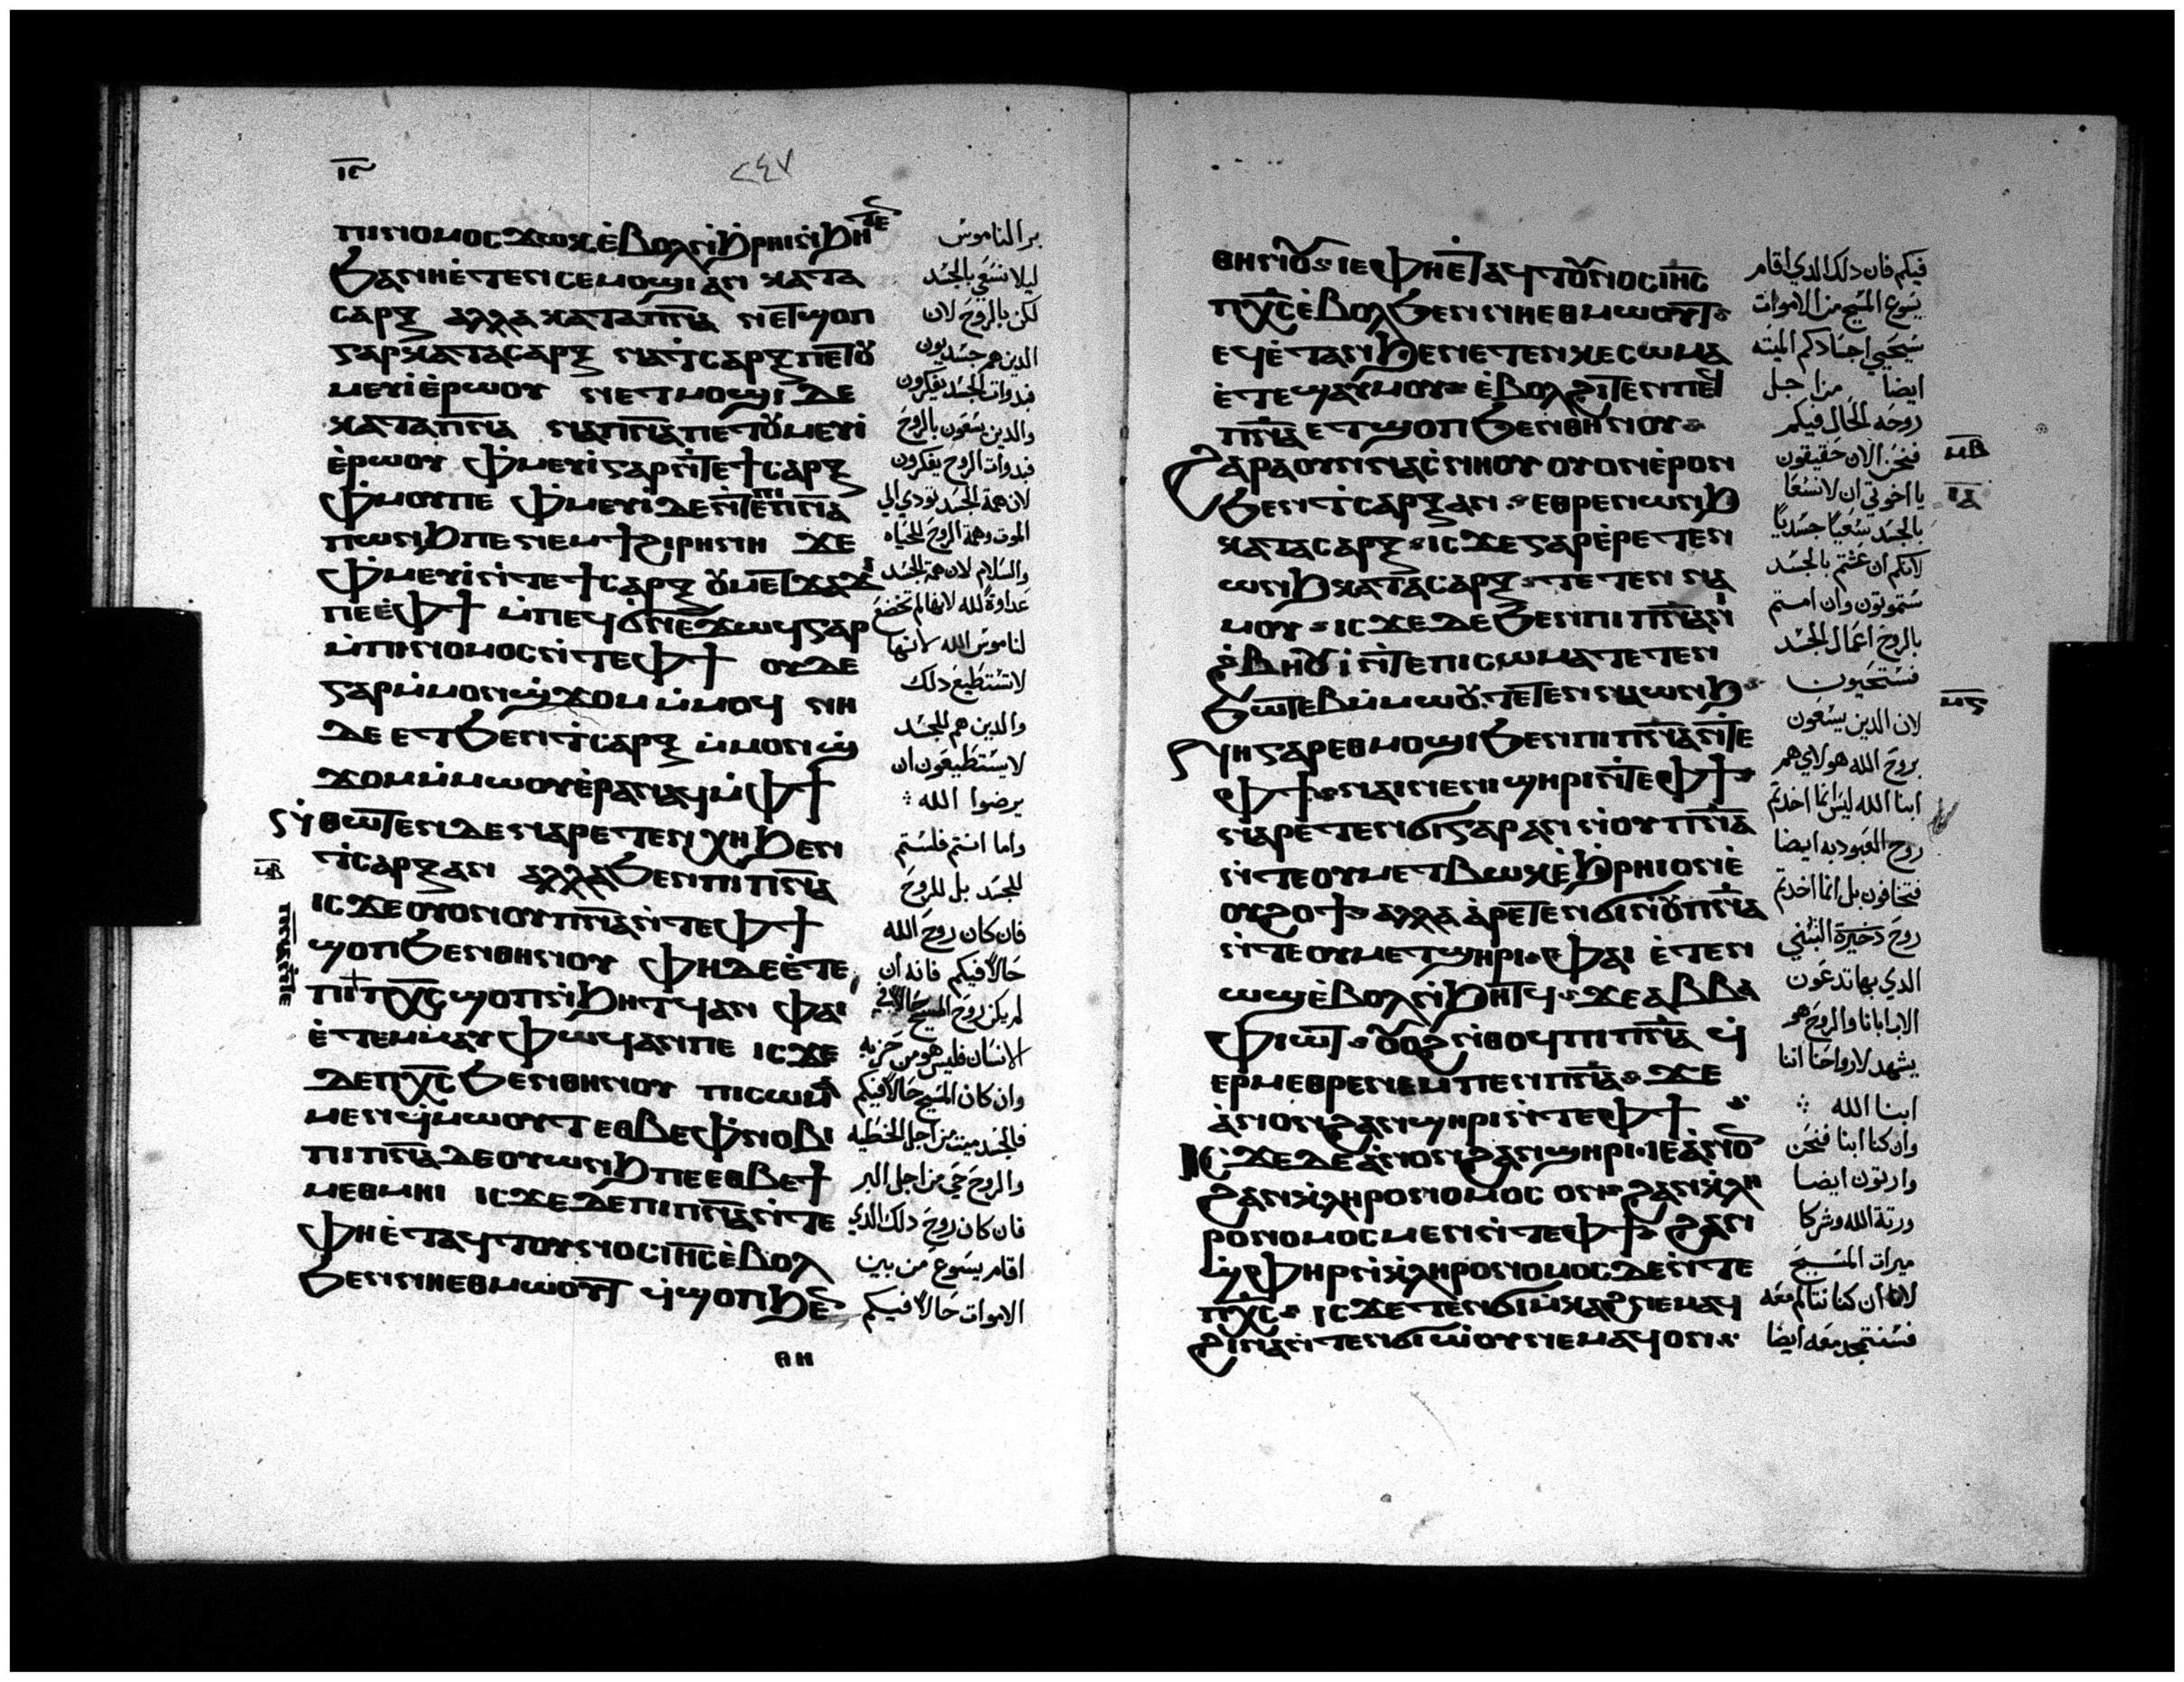 ⲓⲋ
٢٤٧
ⲡⲓⲛⲟⲙⲟⲥ ϫⲱⲕ ⲉ̀ⲃⲟⲗ ⲛ̀ϧⲣⲏⲓ ⲛ̀ϧⲏⲧⲉⲛ
ϧⲁⲛⲏ ⲉ̀ⲧⲉⲛⲥⲉⲙⲟϣⲓ ⲁⲛ ⲕⲁⲧⲁ
ⲥⲁⲣⲝ ⲁⲗⲗⲁ ⲕⲁⲧⲁ ⲡⲛ̅ⲁ̅ ⲛⲉⲧϣⲟⲡ
ⲅⲁⲣ ⲕⲁⲧⲁ ⲥⲁⲣⲝ ⲛⲁ ϯⲥⲁⲣⲝ ⲡⲉⲧⲟⲩ
ⲙⲉⲩⲓ ⲉ̀ⲣⲱⲟⲩ ⲛⲉⲧⲙⲟϣⲓ ⲇⲉ
ⲕⲁⲧⲁ ⲡⲛ̅ⲁ̅ ⲛⲁ ⲡⲛ̅ⲁ̅ ⲡⲉⲧⲟⲩⲙⲉⲩⲓ
ⲉ̀ⲣⲱⲟⲩ ⲫ̀ⲙⲉⲩⲓ ⲅⲁⲣ ⲛ̀ⲧⲉ ϯⲥⲁⲣⲝ
ⲫ̀ⲙⲟⲩ ⲡⲉ ⲫ̀ⲙⲉⲩⲓ ⲇⲉ ⲛ̀ⲧⲉ ⲡⲓⲡⲛ̅ⲁ̅
ⲡⲱⲛϧ ⲡⲉ ⲛⲉⲙ ϯϩⲓⲣⲏⲛⲏ ϫⲉ
ⲫ̀ⲙⲉⲩⲓ ⲛ̀ⲧⲉ ϯⲥⲁⲣⲝ ⲟⲩⲙⲉⲧϫⲁϫⲓ
ⲡⲉ ⲉ̀ⲫϯ ⲙ̀ⲡⲉϥϭⲛⲉϫⲱϥ ⲅⲁⲣ
ⲙ̀ⲡⲓⲛⲟⲙⲟⲥ ⲛ̀ⲧⲉ ⲫϯ ⲟⲩⲇⲉ
ⲅⲁⲣ ⲙ̀ⲙⲟⲛ ϣ̀ϫⲟⲙ ⲙ̀ⲙⲟϥ ⲛⲏ
ⲇⲉ ⲉⲧϧⲉⲛ ϯⲥⲁⲣⲝ ⲙ̀ⲙⲟⲛ ϣ̀
ϫⲟⲙ ⲙ̀ⲙⲱⲟⲩ ⲉ̀ⲣⲁⲛⲁϥ ⲙ̀ⲫϯ
ⲛ̀ⲑⲱⲧⲉⲛ ⲇⲉ ⲛⲁⲣⲉⲧⲉⲛ ⲭⲏ ϧⲉⲛ
ϯⲥⲁⲣⲝ ⲁⲛ ⲁⲗⲗⲁ ϧⲉⲛ ⲡⲓⲡⲛ̅ⲁ̅
ⲓⲥϫⲉ ⲟⲩⲟⲛ ⲟⲩⲡⲛ̅ⲁ̅ ⲛ̀ⲧⲉ ⲫϯ
ϣⲟⲡ ϧⲉⲛ ⲑⲏⲛⲟⲩ ⲫⲏ ⲇⲉ ⲉ̀ⲧⲉ
ⲡⲓ ⲡⲭ̅ⲥ̅ ϣⲟⲡ ⲛ̀ϧⲏⲧϥ ⲁⲛ ⲫⲁⲓ
ⲉ̀ⲧⲉⲙ̀ⲙⲁⲩ ⲫⲱϥ ⲁⲛ ⲡⲉ ⲓⲥϫⲉ
ⲇⲉ ⲡⲭ̅ⲥ̅ ϧⲉⲛ ⲑⲏⲛⲟⲩ ⲡⲓⲥⲱⲙⲁ
ⲙⲉⲛ ϥ̀ⲙⲱⲟⲩⲧ ⲉⲑⲃⲉ ⲫ̀ⲛⲟⲃⲓ
ⲡⲓⲡⲛ̅ⲁ̅ ⲇⲉ ⲟⲩⲱⲛϧ ⲡⲉ ⲉⲑⲃⲉ ϯ
ⲙⲉⲑⲙⲏⲓ ⲓⲥϫⲉ ⲇⲉ ⲡⲓⲡⲛ̅ⲁ̅ ⲛ̀ⲧⲉ
ⲫⲏ ⲉ̀ⲧⲁϥⲧⲟⲩⲛⲟⲥ ⲓⲏ̅ⲥ̅ ⲉ̀ⲃⲟⲗ
ϧⲉⲛ ⲛⲏⲉⲑⲙⲱⲟⲩⲧ ϥ̀ϣⲟⲡ ϧⲉⲛ
ⲑⲏ
ⲙⲃ
ⲡⲛ̅ⲁ̅ ⲛ̀ⲧⲉ
بر الناموس
ليلا نسعي بالجسد
لكن بالروح لان
الدين هم جسديون
فبدوات الجسد يفكرون
والدين يسعون بالروح
فبدوات الروح يفكرون
لان همة الجسد تودي الي
الموت وهمة الروح للحياه
والسلام لان همة الجسد
عداوة لله لانها لم تخضع
لناموس الله لانها
لاتستطيع دلك
والدين هم للجسد
لايستطيعون ان
يرضوا الله ⁘
واما انتم فلستم
للجسد بل للروح
فان كان روح الله
حالا فيكم فانه ان
لم يكن روح المسيح حالا في
الانسان فليس هو من حزبه
وان كان المسيح حالا فيكم
فالجسد ميت من اجل الخطيه
والروح حي من اجل البر
فان كان روح دلك الدي
اقام يسوع من بين
الاموات حالا فيكم
ⲑⲏⲛⲟⲩ ⲓⲉ ⲫⲏ ⲉ̀ⲧⲁϥⲧⲟⲩⲛⲟⲥ ⲓⲏ̅ⲥ̅
ⲡⲭ̅ⲥ̅ ⲉ̀ⲃⲟⲗ ϧⲉⲛ ⲛⲏⲉⲑⲙⲱⲟⲩⲧ
ⲉϥⲉ̀ⲧⲁⲛϧⲉ ⲛⲉⲧⲉⲛⲕⲉⲥⲱⲙⲁ
ⲉ̀ⲧⲉϣⲁⲩⲙⲟⲩ ⲉ̀ⲃⲟⲗϩⲓⲧⲉⲛ ⲡⲉϥ
ⲡⲛ̅ⲁ̅ ⲉⲧϣⲟⲡ ϧⲉⲛ ⲑⲏⲛⲟⲩ
ϩⲁⲣⲁ ⲟⲩⲛ ⲛⲁⲥ̀ⲛⲏⲟⲩ ⲟⲩⲟⲛ ⲉ̀ⲣⲟⲛ
ϧⲉⲛ ϯⲥⲁⲣⲝ ⲁⲛ ⲉⲑⲣⲉⲛⲱⲛϧ
ⲕⲁⲧⲁ ⲥⲁⲣⲝ ⲓⲥϫⲉ ⲅⲁⲣ ⲉ̀ⲣⲉⲧⲉⲛ
ⲱⲛϧ ⲕⲁⲧⲁ ⲥⲁⲣⲝ ⲧⲉⲧⲉⲛⲛⲁ
ⲙⲟⲩ ⲓⲥϫⲉ ⲇⲉ ϧⲉⲛ ⲡⲓⲡⲛ̅ⲁ̅ ⲛⲓ
ϩⲃⲏⲟⲩⲓ ⲛ̀ⲧⲉ ⲡⲓⲥⲱⲙⲁ ⲧⲉⲧⲉⲛ
ϧⲱⲧⲉⲃ ⲙ̀ⲙⲱⲟⲩ ⲧⲉⲧⲉⲛⲛⲁⲱⲛϧ
ⲛⲏ ⲅⲁⲣ ⲉⲑⲙⲟϣⲓ ϧⲉⲛ ⲡⲓⲡⲛ̅ⲁ̅ ⲛ̀ⲧⲉ
ⲫϯ ⲛⲁⲓ ⲛⲉ ⲛⲓϣⲏⲣⲓ ⲛ̀ⲧⲉ ⲫϯ
ⲛⲁⲣⲉⲧⲉⲛϭⲓ ⲅⲁⲣ ⲁⲛ ⲛ̀ⲟⲩⲡⲛ̅ⲁ̅
ⲛ̀ⲧⲉ ⲟⲩⲙⲉⲧⲃⲱⲕ ⲉ̀ϧⲣⲏⲓ ⲟⲛ ⲉ̀
ⲟⲩϩⲟϯ ⲁⲗⲗⲁ ⲁ̀ⲣⲉⲧⲉⲛϭⲓ ⲛ̀ⲟⲩⲡⲛ̅ⲁ̅
ⲛ̀ⲧⲉ ⲟⲩⲙⲉⲧϣⲏⲣⲓ ⲫⲁⲓ ⲉ̀ⲧⲉⲛ
ⲱϣ ⲉ̀ⲃⲟⲗ ⲛ̀ϧⲏⲧϥ ϫⲉ ⲁⲃⲃⲁ
ⲫⲓⲱⲧ ⲟⲩⲟϩ ⲛ̀ⲑⲟϥ ⲡⲓⲡⲛ̅ⲁ̅ ϥ̀
ⲉⲣⲙⲉⲑⲣⲉ ⲛⲉⲙ ⲡⲉⲛⲡⲛ̅ⲁ̅ ϫⲉ
ⲁ̀ⲛⲟⲛ ϩⲁⲛϣⲏⲣⲓ ⲛ̀ⲧⲉ ⲫϯ
ⲓⲥϫⲉ ⲇⲉ ⲁ̀ⲛⲟⲛ ϩⲁⲛϣⲏⲣⲓ ⲓⲉ ⲁ̀ⲛⲟⲛ
ϩⲁⲛⲕⲗⲏⲣⲟⲛⲟⲙⲟⲥ ⲟⲛ ϩⲁⲛⲕⲗⲏ
ⲣⲟⲛⲟⲙⲟⲥ ⲙⲉⲛ ⲛ̀ⲧⲉ ⲫϯ ϩⲁⲛ
ϣ̀ⲫⲏⲣ ⲛ̀ⲕⲗⲏⲣⲟⲛⲟⲙⲟⲥ ⲇⲉ ⲛ̀ⲧⲉ
ⲡⲭ̅ⲥ̅ ⲓⲥϫⲉ ⲧⲉⲛϭⲓⲙ̀ⲕⲁϩ ⲛⲉⲙⲁϥ
ϩⲓⲛⲁ ⲛ̀ⲧⲉⲛϭⲓⲱ̀ⲟⲩ ⲛⲉⲙⲁϥ ⲟⲛ
فيكم فان دلك الدي اقام
يسوع المسيح من الاموات
سيحيي اجسادكم الميته
ايضا من اجل
روحه الحال فيكم
فنحن الان حقيقون
يا اخوتي ان لا نسعا
بالجسد سعيا جسديا
لانكم ان عشتم بالجسد
ستموتون وان امتم
بالروح اعمال الجسد
فستحيون
لان الدين يسعون
بروح الله هولاي هم
ابنا الله ليس انما اخدتم
روح العبوديه ايضا
فتخافون بل انما اخدتم
روح دخيرة التبني
الدي بها تدعون
الاب ابانا والروح هو
يشهد لارواحنا اننا
ابنا الله ⁘
وان كنا ابنا فنحن
وارتون ايضا
ورتة الله وشركا
ميرات المسيح
لاننا ان كنا نتالم معه
فسنتمجد معه ايضا
ⲙⲃ
ⲓⲁ
ⲙⲅ